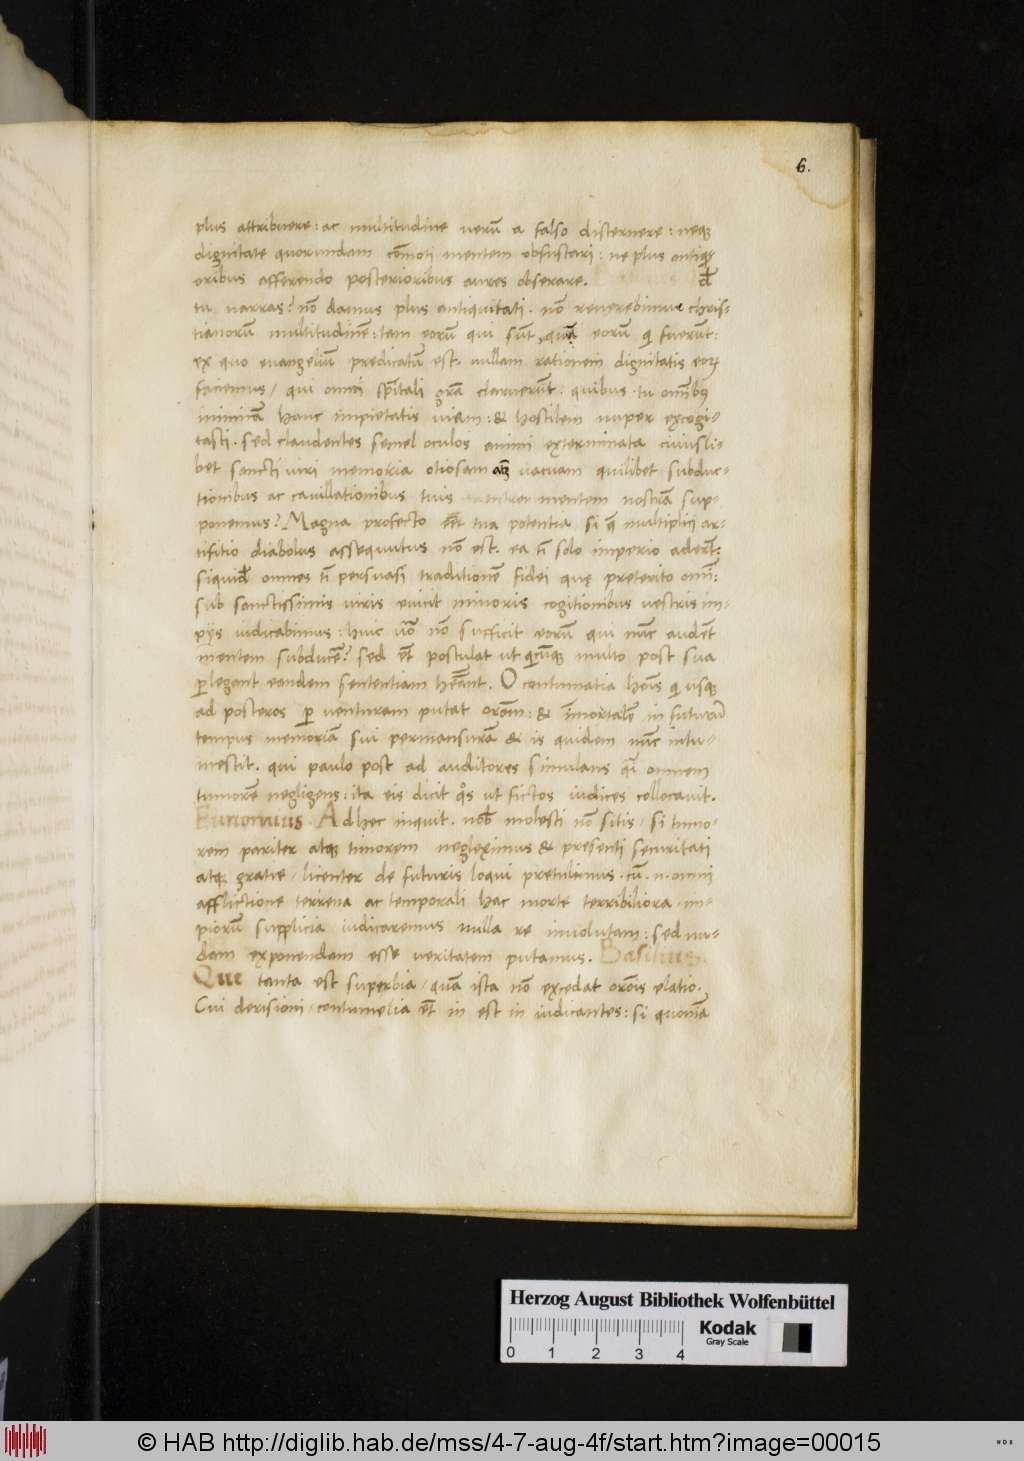 6.
plus attribuere : ac multitudine verū a falso discernere : neqꝫ
dignitate quorundam cōmoti mentem obfuscari : ne plus antiqui
oribus afferendo posterioribus aures obserare. qd̄
tu narras? nō damus plus antiquitati. nō reverebimur chris-
tianorū multitudinē : tam eorū qui sūt, quā eorū q fuerūt :
ex quo evangeliū predicatū est. nullam rationem dignitatis eoꝝ
faciemus / qui omni sp̄itali gr̄a claruerūt : quibus tu omībꝫ
inimicā hanc impietatis viam : & hostilem nuper excogi-
tasti. sed claudentes semel oculos animi exterminata cuiusli-
bet sancti viri memoria otiosam atqꝫ vacuam quilibet subduc-
tionibus ac cavillationibus tuis mentem nostrā sup-
ponemus? Magna profecto eēt tua potentia si q̄ multiplici ar-
tifitio diabolus assequutus nō est. ea t̄ solo imperio aderēt :
siquid̄ omnes t̄ persuasi traditionē fidei que preterito omī :
sub sanctissimis viris evicit minoris cogitionibus vestris im-
pijs iudicabimus : huic v̄o nō sufficit eorū qui nūc audēt
mentem subducē? sed ēt postulat ut qcūqꝫ multo post sua
ꝑlegant eandem sententiam hēāt. O contumatia hoīs q usqꝫ
ad posteros ꝑventuram putat orōem : & īmortalē in futurū
tempus memoriā sui permansurā & is quidem nūc intu-
mescit. qui paulo post ad auditores simulans q̄i omnem
tumorē negligens : ita eis dicit qͦs ut fictos iudices collocavit.
Eunomius. Ad hec inquit. nob̄ molesti nō sitis / si tumo-
rem pariter atqꝫ timorem negleximus & presenti securitati
atqꝫ gratie / licenter de futuris loqui pretulimus. cū .n. omni
afflictione terrena ac temporali hac morte terribiliora im-
piorū supplicia iudicaremus nulla re involutam : sed nu-
dam exponendam esse veritatem putamus. Basilius.
Que tanta est superbia / quā ista nō excedat orōnis elatio.
Cui derisioni / contumelia ēt in est in iudicantes : si quoniā
Herzog August Bibliothek Wolfenbüttel
0 1 2 3 4
Kodak
Gray Scale
© HAB http://diglib.hab.de/mss/4-7-aug-4f/start.htm?image=00015